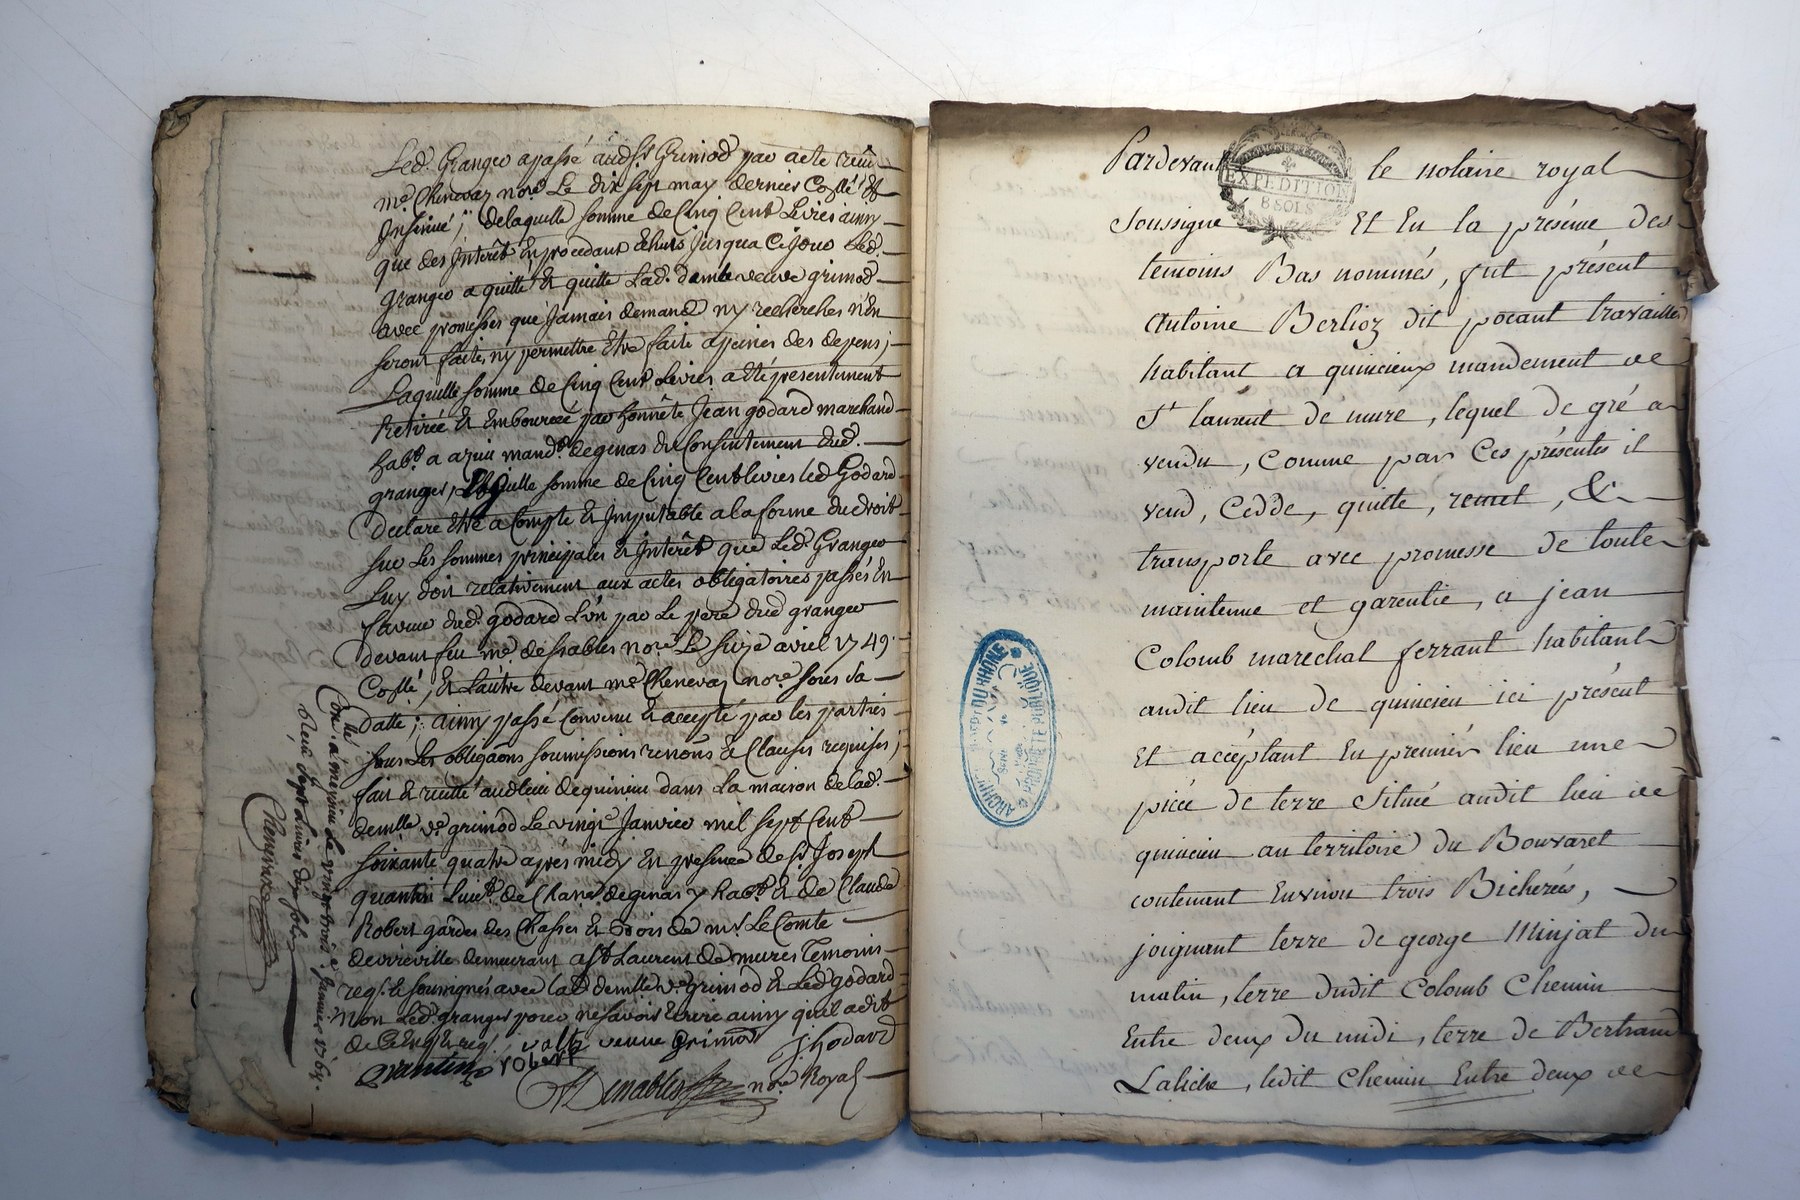 Led. Granger a passé aud. Sr. Grimod par acte reçu
me. Chenevaz nore. Le dix sept may dernier Collé. Et
Insinué; de laquelle somme de Cinq Cent Livres ainsy
que des Interêt En procedant Echus Jusqua Ce jour Led.
Granger a quitté Et quitte Lad. dame veuve grimod
avec promesses que Jamais demand ny recherches n'En
seront faite ny permettre Etre faite a peines des depens;
Laquelle somme de Cinq Cent Livres a Eté presentement
Retirée Et Emboursée par honnête Jean godard marchand
habt. a azieu mandt. de genas du Consentement dud.
granger, Laquelle somme de Cinq Cent livres led Godard
declare Etre a Compte Et Imputable a la forme du droit
sur Les sommes principales Et Interêt que Led. Granger
Luy doit relativement aux actes obligatoires passés En
faveur dud. godard L'un par Le pere dud granger
devant feu me. desables nore. Le seize avril 1749
Collé, Et L'autre devant me. Chenevaz nore. sous sa
datte; ainsy passé Convenu Et accepté par les parties
sous Les obligaons soumissions renons. Et Clauses requises;
fait Et recitté aud lieu de quincieu dans La maison de lad.
demlle ve. grimod Le vingt Janvier mil sept Cent
soixante quatre après midy En presence de sr. Joseph
quantin Lieut. de Chatnie de genas y habt. Et de Claude
Robert gardes des Chasses Et Bois de mr. Le Comte
de vireville demeurant a St. Laurent de mures Temoins
reqs. Et soussignés avec lad. demlle ve. grimod Et Led. godard
Non Led. granger pour ne savoir Ecrire ainsy qu'il a dit
de Ce Enq. Et req.
veuve grimod J. godard
quantin robert
Desables nore Royal
Collé
Con. a meyzieu Le vingt trois Janvier 1764.
Reçu sept Livres dix sols
Chenevaz
Pardevant le notaire royal
EXPEDITION
8 SOLS
Soussigné Et En la présence des
temoins Bas nommés, fut présent
Antoine Berlioz dit pocant travailleur
habitant a quincieux mandement de
St laurent de mure, lequel de gré a
vendu, comme par Ces présentes il
vend, Cedde, quitte, remet, &
transporte avec promesse de toute
maintenue et garentie, a jean
Colomb marechal ferrant habitant
audit lieu de quincieu ici présent
Et accéptant En premier lieu une
piéce de terre Située audit lieu de
quincieu au territoire du Bouvaret
contenant Environ trois Bicherées,
joignant terre de george Minjat du
matin, terre dudit Colomb Chemin
Entre deux du midi, terre de Bertrand
Laliche, ledit Chemin Entre deux de
ARCHIVES DU RHONE
PROPRIETE PUBLIQUE